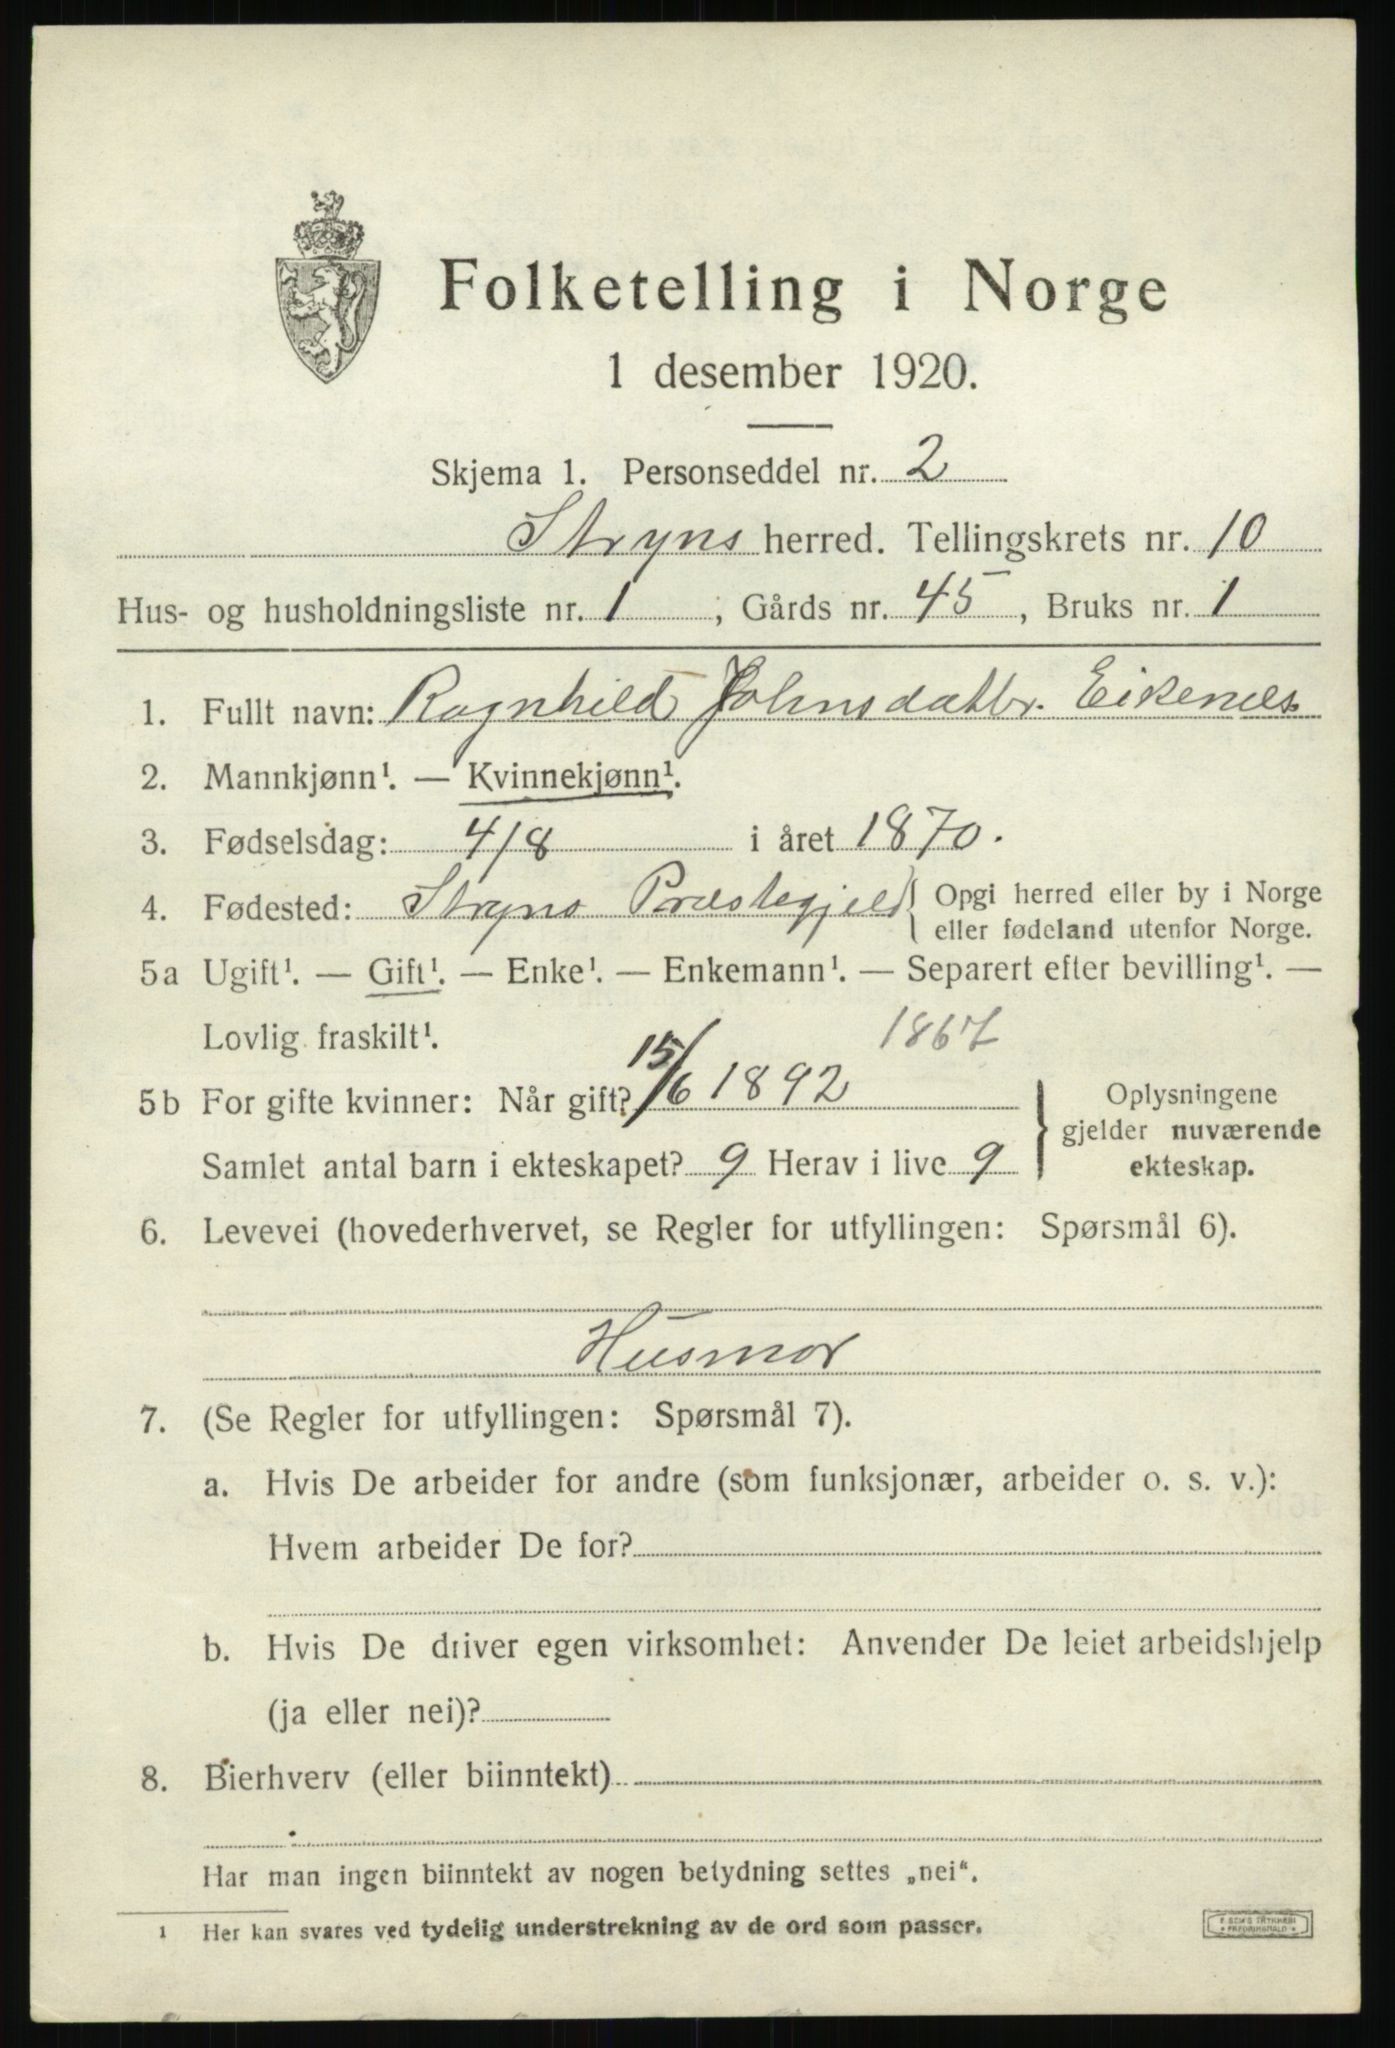 Folketelling i Norge
1 desember 1920.
Skjema 1. Personseddel nr. 2
Stryns herred. Tellingskrets nr. 10
Hus- og husholdningsliste nr. 1, Gårds nr. 45, Bruks nr. 1
1. Fullt navn: Ragnhild Johnsdattr. Eikenes
2. Mannkjønn¹. — Kvinnekjønn¹.
3. Fødselsdag: 4/8 i året 1870.
4. Fødested: Stryns Præstegjeld { Opgi herred eller by i Norge
eller fødeland utenfor Norge.
5a Ugift¹. — Gift¹. — Enke¹. — Enkemann¹. — Separert efter bevilling¹. —
Lovlig fraskilt¹. 1867
5b For gifte kvinner: Når gift? 15/6 1892
Samlet antal barn i ekteskapet? 9 Herav i live 9
} Oplysningene
gjelder nuværende
ekteskap.
6. Levevei (hovederhvervet, se Regler for utfyllingen: Spørsmål 6).
Husmor
7. (Se Regler for utfyllingen: Spørsmål 7).
a. Hvis De arbeider for andre (som funksjonær, arbeider o. s. v.):
Hvem arbeider De for?
b. Hvis De driver egen virksomhet: Anvender De leiet arbeidshjelp
(ja eller nei)?
8. Bierhverv (eller biinntekt)
Har man ingen biinntekt av nogen betydning settes „nei“.
¹ Her kan svares ved tydelig understrekning av de ord som passer.